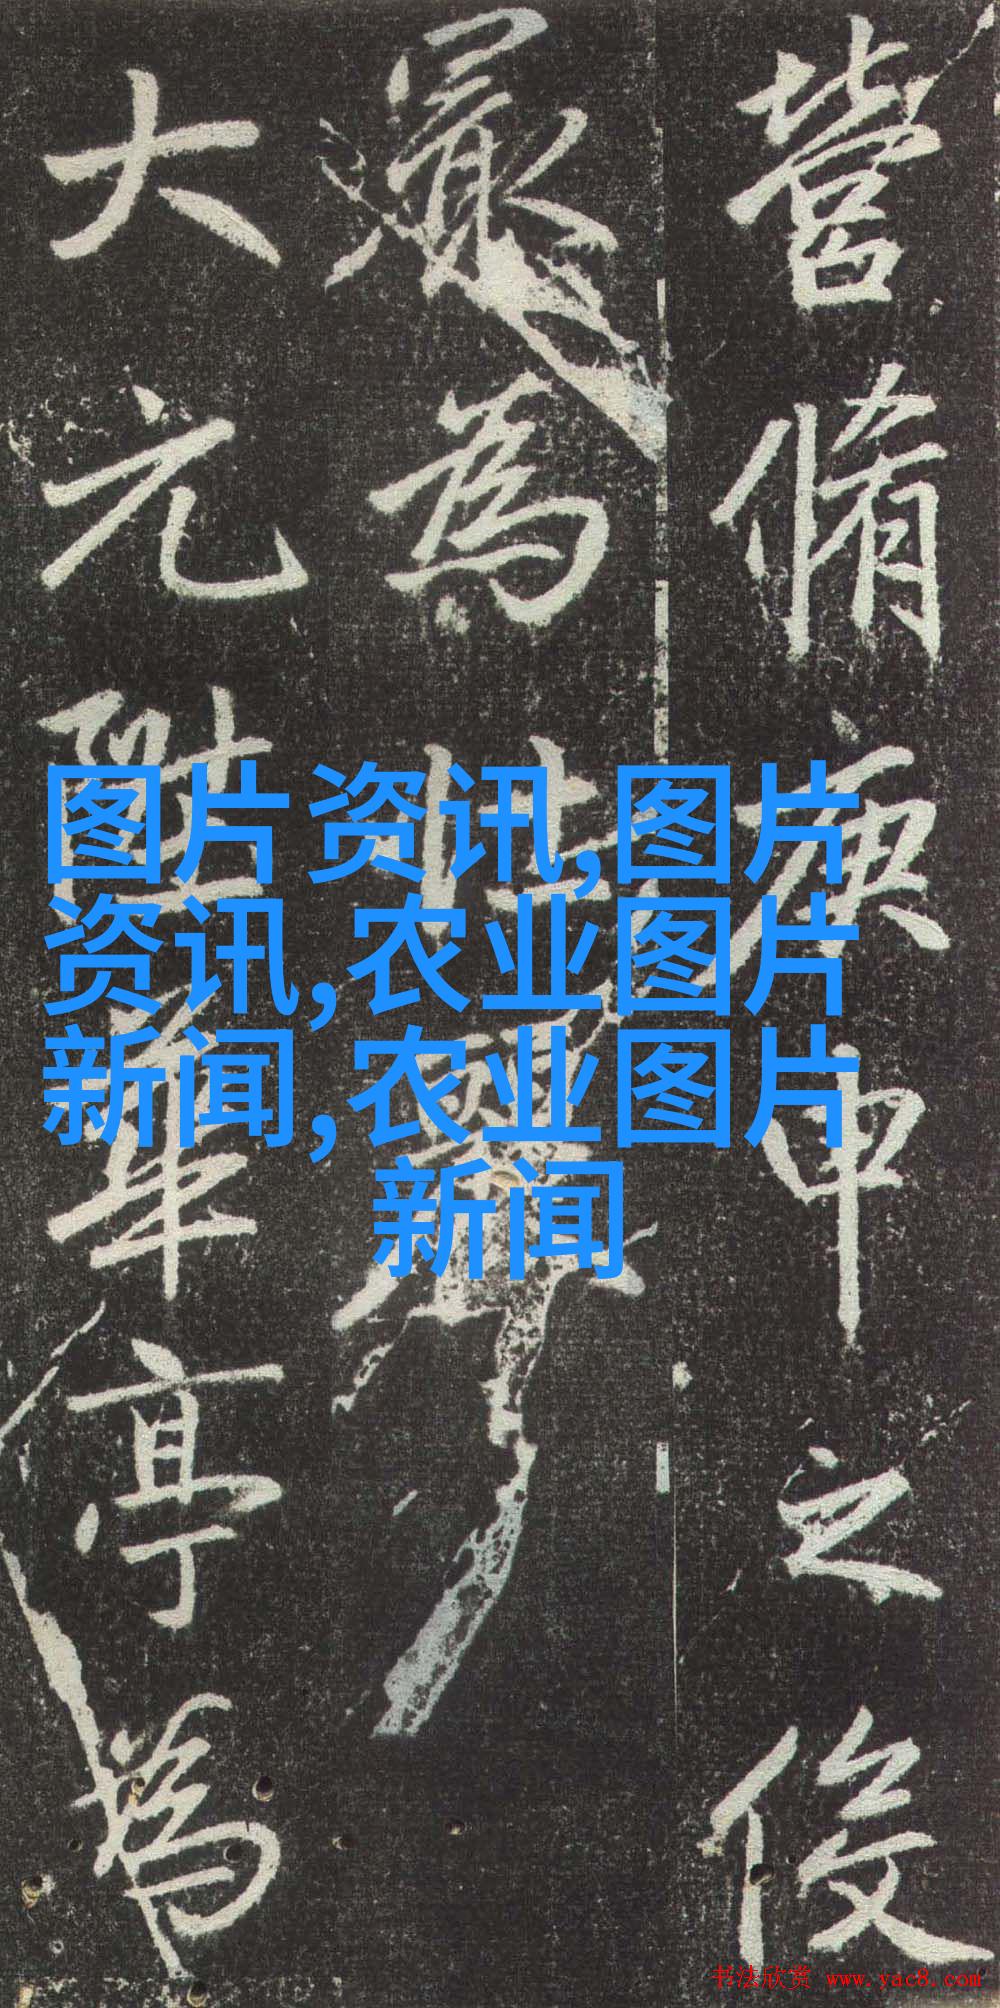 營脩庚申之後
最為壯麗
大元陞華亭為
图片资讯,图片
资讯,农业图片
新闻,农业图片
新闻
书法欣赏 www.yac8.com